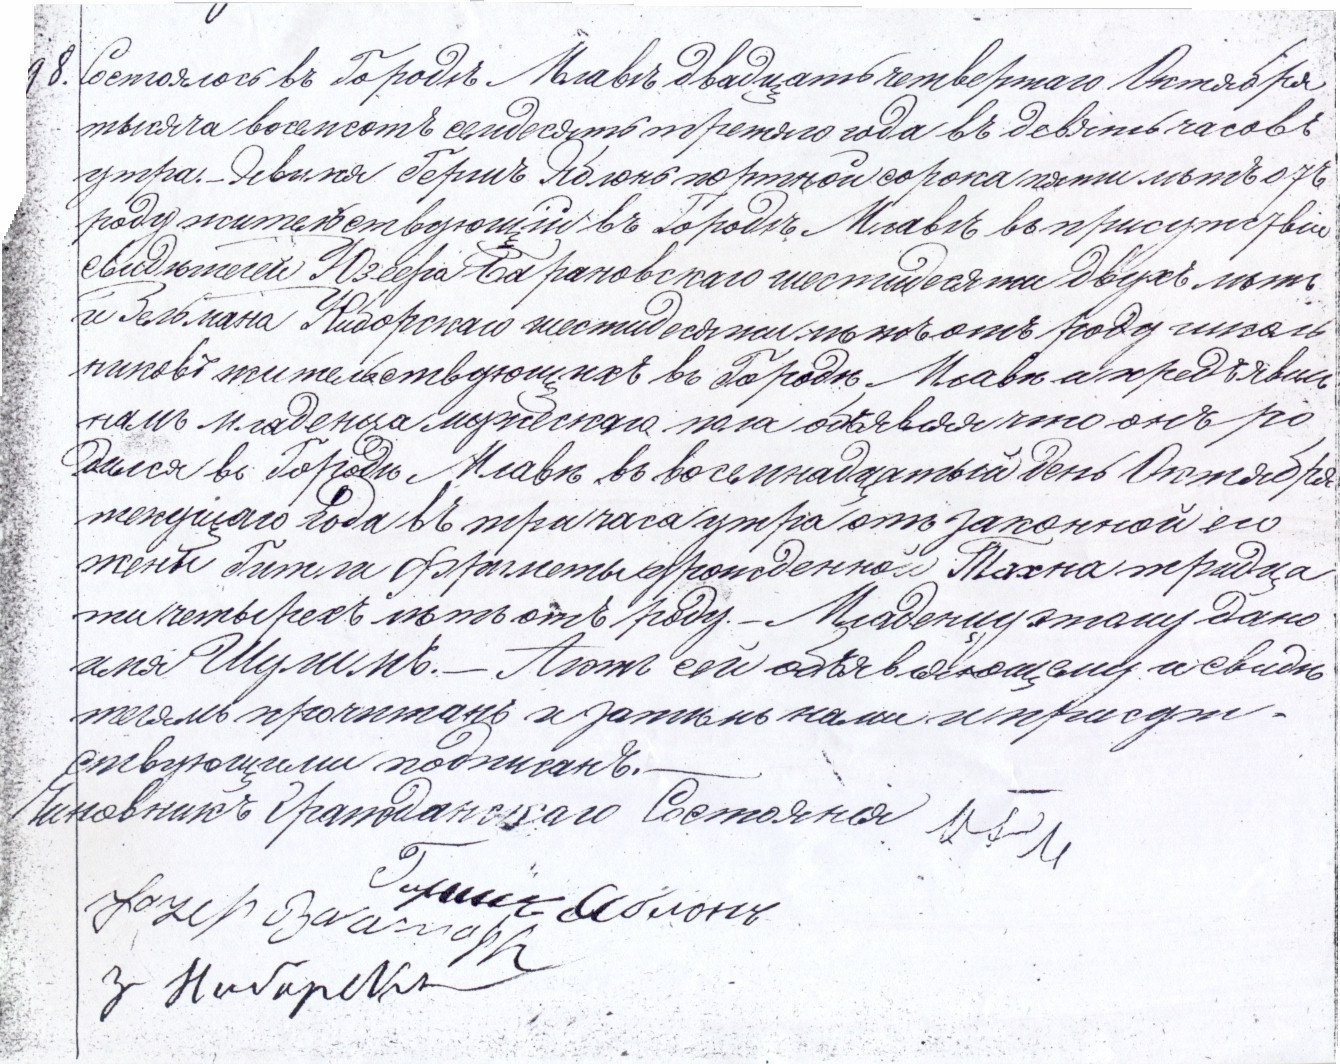 98. Состоялось въ Городѣ Млавѣ двадцать четвертаго Октября
тысяча восемсотъ семдесятъ третяго года въ девять часовъ
утра. – Явился Гершъ Яблонь портной сорока пяти лѣтъ отъ
роду жительствующій въ Городѣ Млавѣ въ присутствіи
свидѣтелей Юзефа Барановскаго шестидесяти двухъ лѣтъ
и Зельмана Неборскаго шестидесяти лѣтъ отъ роду школь
никовъ жительствующихъ въ Городѣ Млавѣ и предъявилъ
намъ младенца мужескаго пола объявляя что онъ ро
дился въ Городѣ Млавѣ въ восемнадцатый день Октября
текущаго года въ три часа утра отъ законной его
жены Гитли урожденной тридца
ти четырехъ лѣтъ отъ роду. – Младенцу этому дано
имя Шулимъ. – Актъ сей объявляющему и свидѣ
телямъ прочитанъ и затѣмъ нами и присут-
ствующими подписанъ. —
Чиновникъ Гражданскаго Состоянія
Гершъ Яблонь
З Ниборски